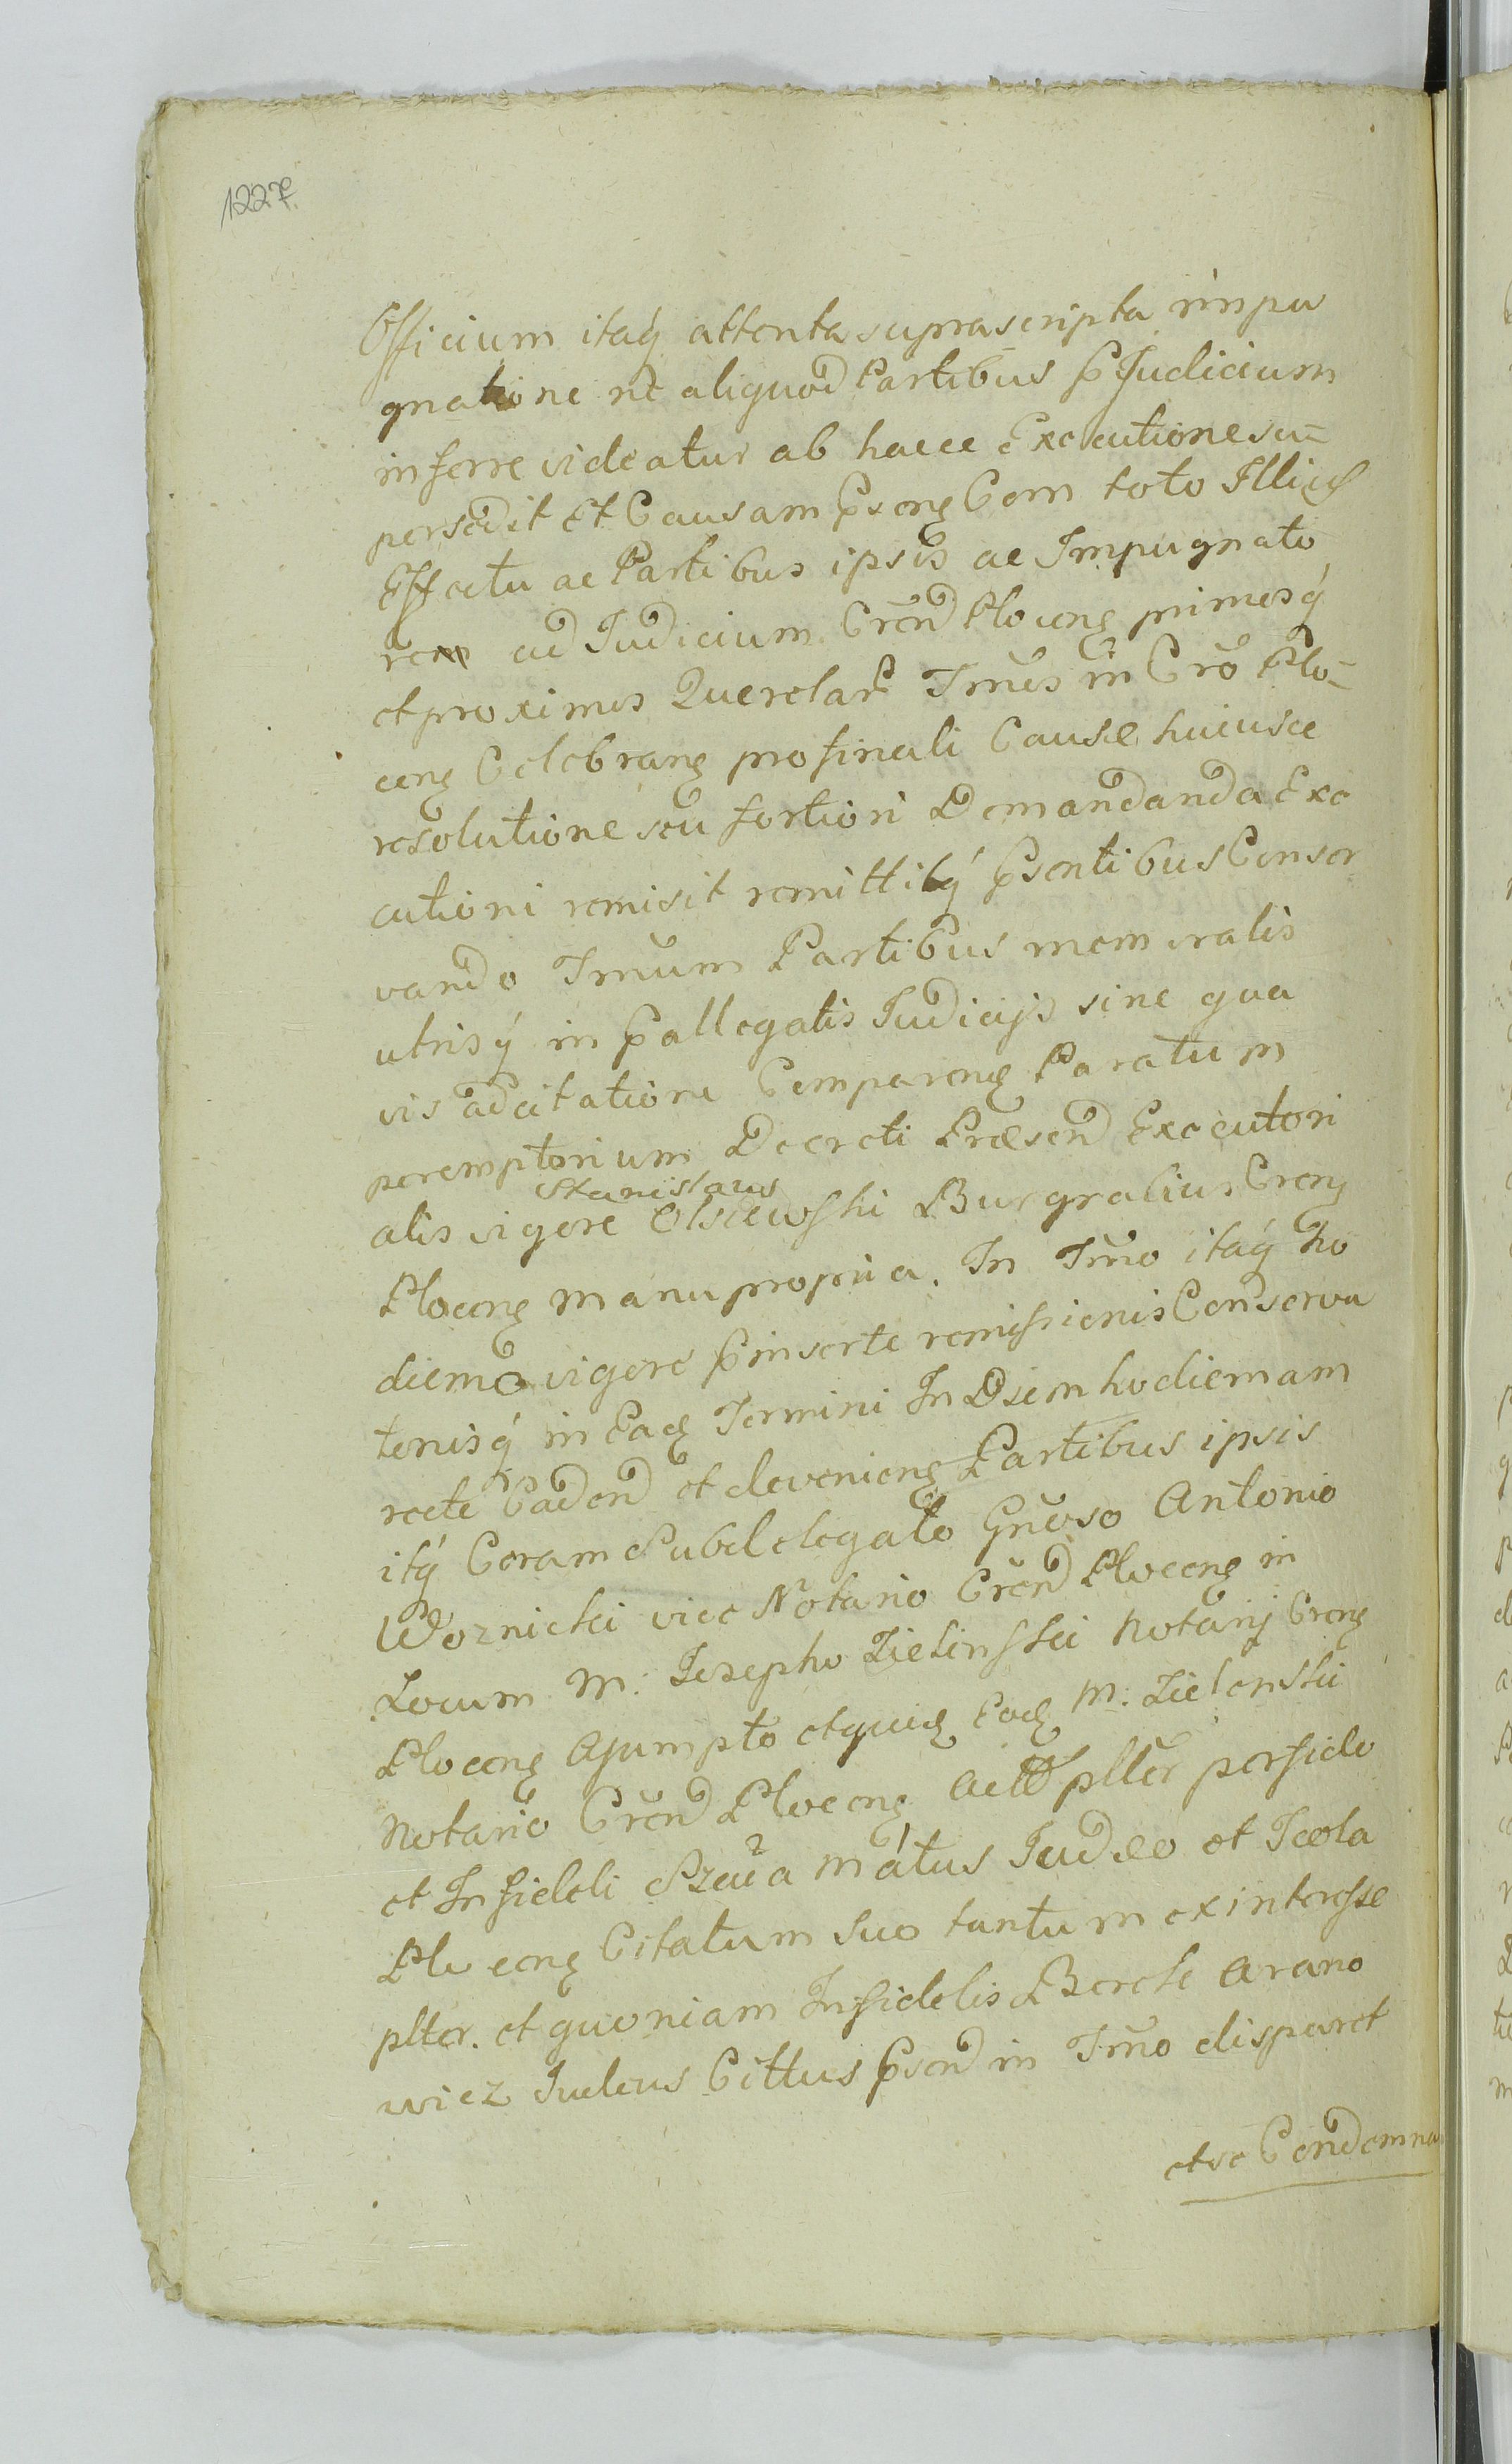 1227
Officium itaq attenta suprascripta impu
gnatione ne aliquod Partibus pJudicium
inferre videatur ab hacce Executione su-
persedit Et Causam psen Com toto Illius
Effectu ac Partibus ipsis ac Impugnato
rem ad Judicium Cren Plocen primosq
et proximos Querelar Tmis in Cro Plo-
cen Celebran pro finali Cause huiusce
resolutione seu fortiori Demandanda Exe
cutioni remisit remittitq psentibus Conser
vando Tmum Partibus memoratis
utrisq in pallegatis Judicijs sine qua
vis adcitatione Comparen Paratum
peremptorium Decreti Præsen Executori
Stanislaus
alis vigore Olszewski Burgrabius Cren
Plocen manu propria. In Tmo itaq ho
dierno vigore pinserte remissionis Conserva
tenisq in Ead Termini In Diem hodiernam
recte Caden et devenien Partibus ipsis
itq Coram Subdelegato Gnoso Antonio
Woznicki vice Notario Cren Plocen in
Locum M: Josepho Zielinski Notarij Cren
Plocen Assumpto et quid Eod M: Zielenski
Notario Cren Plocen Act plter perfido
et Infideli Szaia Mátus Judeo et Icola
Plo cen Citatum suo tantum ex interesse
plter. et quoniam Infidelis Berek Arano
wicz Judeus Cittus psen in Tmo disparet
et se Condemna